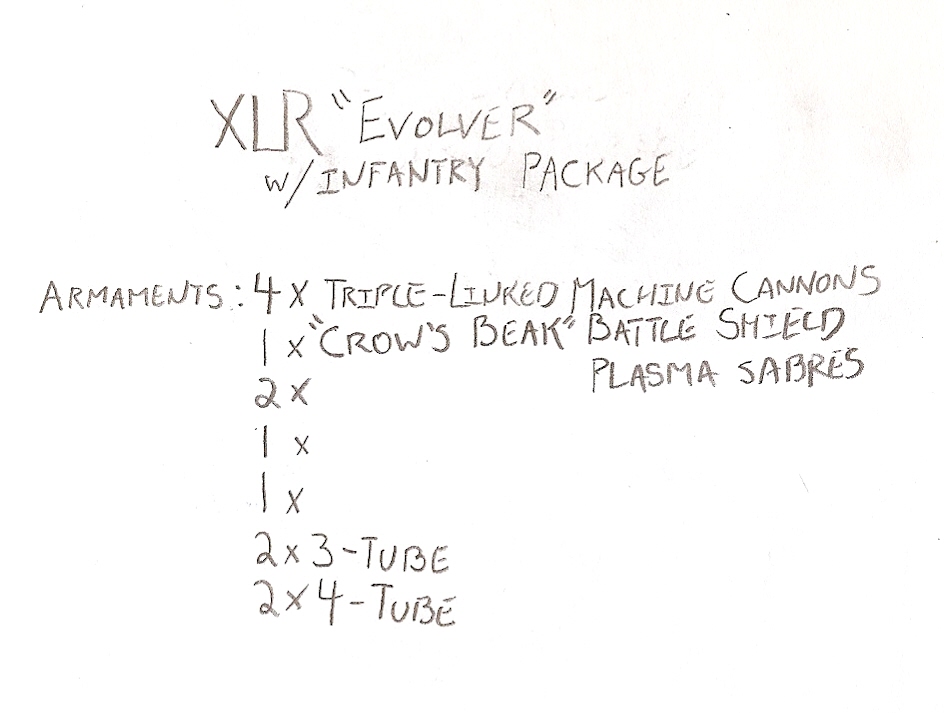 XLR "EVOLVER"
W/ INFANTRY PACKAGE
ARMAMENTS: 4 X TRIPLE-LINKED MACHINE CANNONS
1 X "CROW'S BEAK" BATTLE SHIELD
2 X PLASMA SABRES
1 X
1 X
2 X 3-TUBE
2 X 4-TUBE